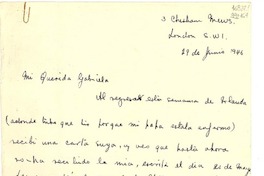 3 Chesham Mews.
London S.W.1.
29 de Junio 1946
Mi Querida Gabriela
Al regresar esta semana de Irlanda
(adonde tube que ir porque mi papa estaba enfermo)
recibí una carta suya, y veo que hasta ahora
no ha recibido la mia, escrita el dia 20 de mayo